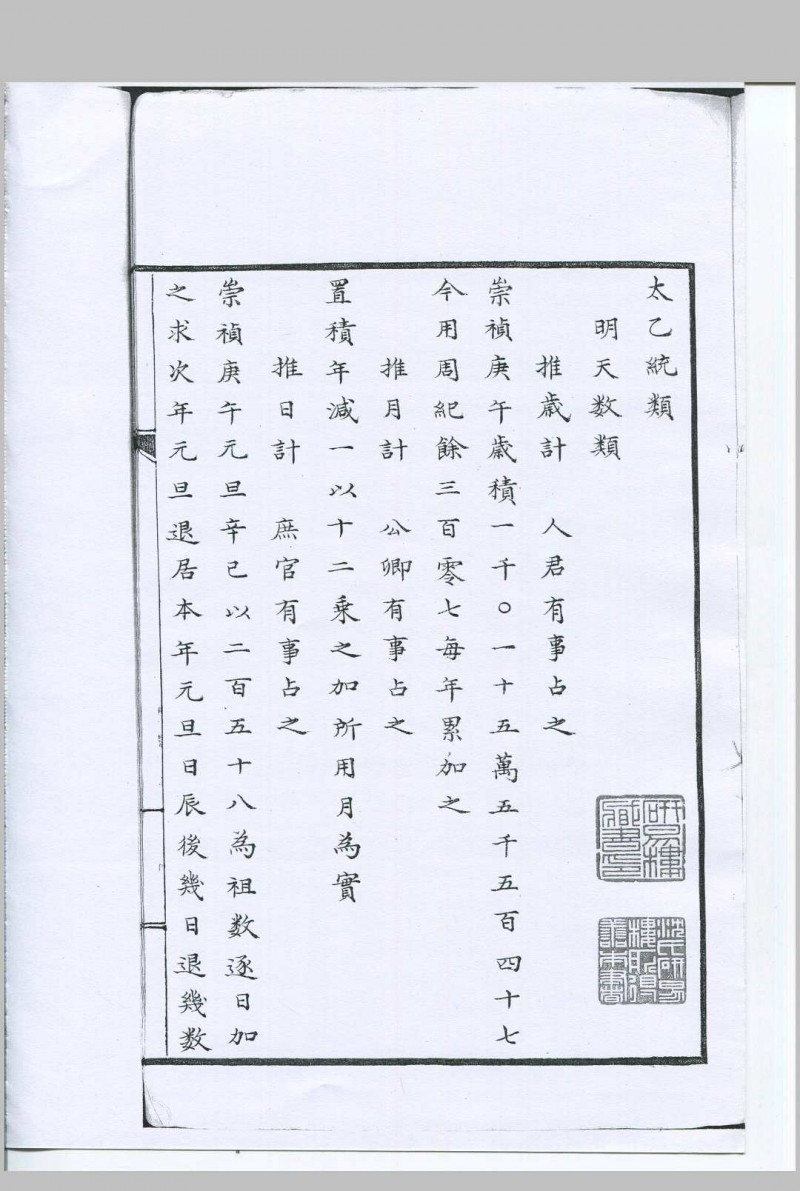 太乙統類
明天数類
推歲計 人君有事占之
崇禎庚午歲積一千〇一十五萬五千五百四十七
今用周紀餘三百零七每年累加之
推月計 公卿有事占之
置積年減一以十二乘之加所用月為實
推日計 庶官有事占之
崇禎庚午元旦辛巳以二百五十八為祖数逐日加
之求次年元旦退居本年元旦日辰後幾日退幾数
研易樓藏書印
沈氏研易樓所得善本書